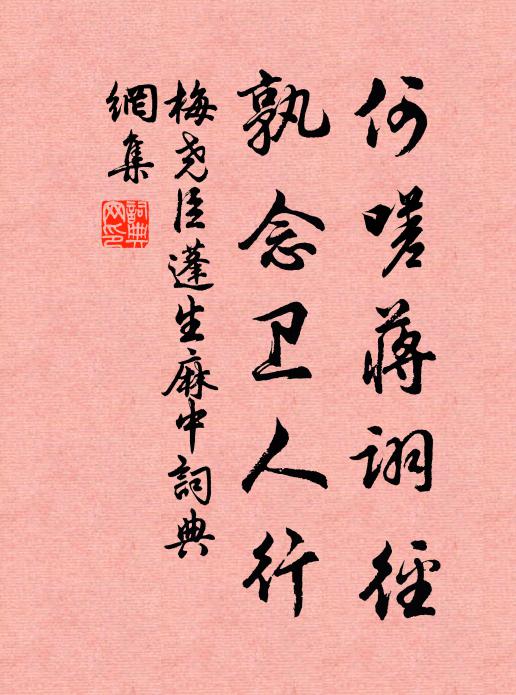 何嗟蔣詡徑
孰念卫人行
梅尧臣蓬生麻中詞典
網集
詞典
网印